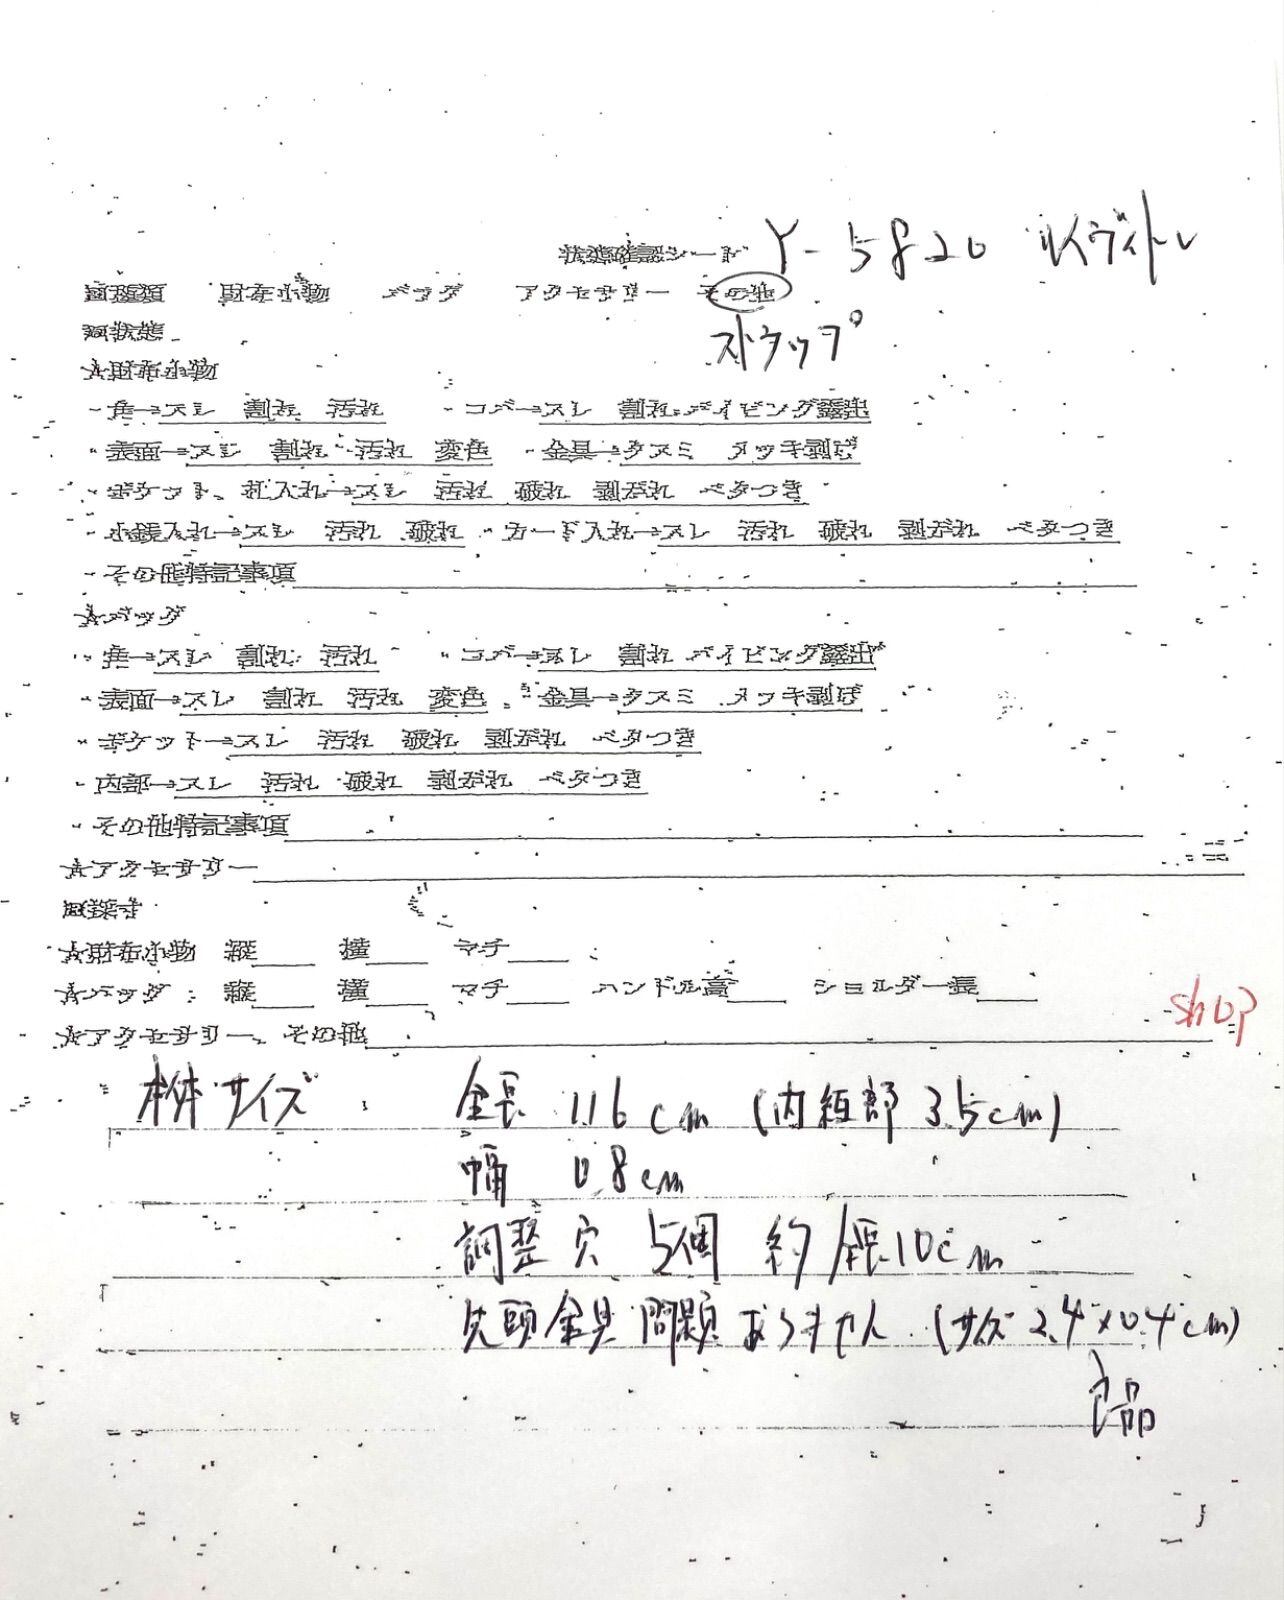 状態確認シート Y-5820 ルイヴィトン
財布小物 バッグ アクセサリー その他
ストラップ
状態
☆財布小物
・角→スレ 割れ 汚れ ・コバ→スレ 割れ パイピング露出
・表面→スレ 割れ 汚れ 変色 ・金具→クスミ メッキ剥げ
・ポケット、札入れ→スレ 汚れ 破れ 剥がれ ベタつき
・小銭入れ→スレ 汚れ 破れ ・カード入れ→スレ 汚れ 破れ 剥がれ ベタつき
・その他特記事項
☆バッグ
・角→スレ 割れ 汚れ ・コバ→スレ 割れ パイピング露出
・表面→スレ 割れ 汚れ 変色 ・金具→クスミ メッキ剥げ
・ポケット→スレ 汚れ 破れ 剥がれ ベタつき
・内部→スレ 汚れ 破れ 剥がれ ベタつき
・その他特記事項
☆アクセサリー
採寸
☆財布小物 縦 横 マチ
☆バッグ 縦 横 マチ ハンドル高 ショルダー長
SHOP
☆アクセサリー、その他
本体サイズ 全長 116cm (内短部 35cm)
幅 0.8cm
調整穴 5個 約 全長10cm
先頭金具 問題ありません (サイズ 2.4×0.4cm)
良品